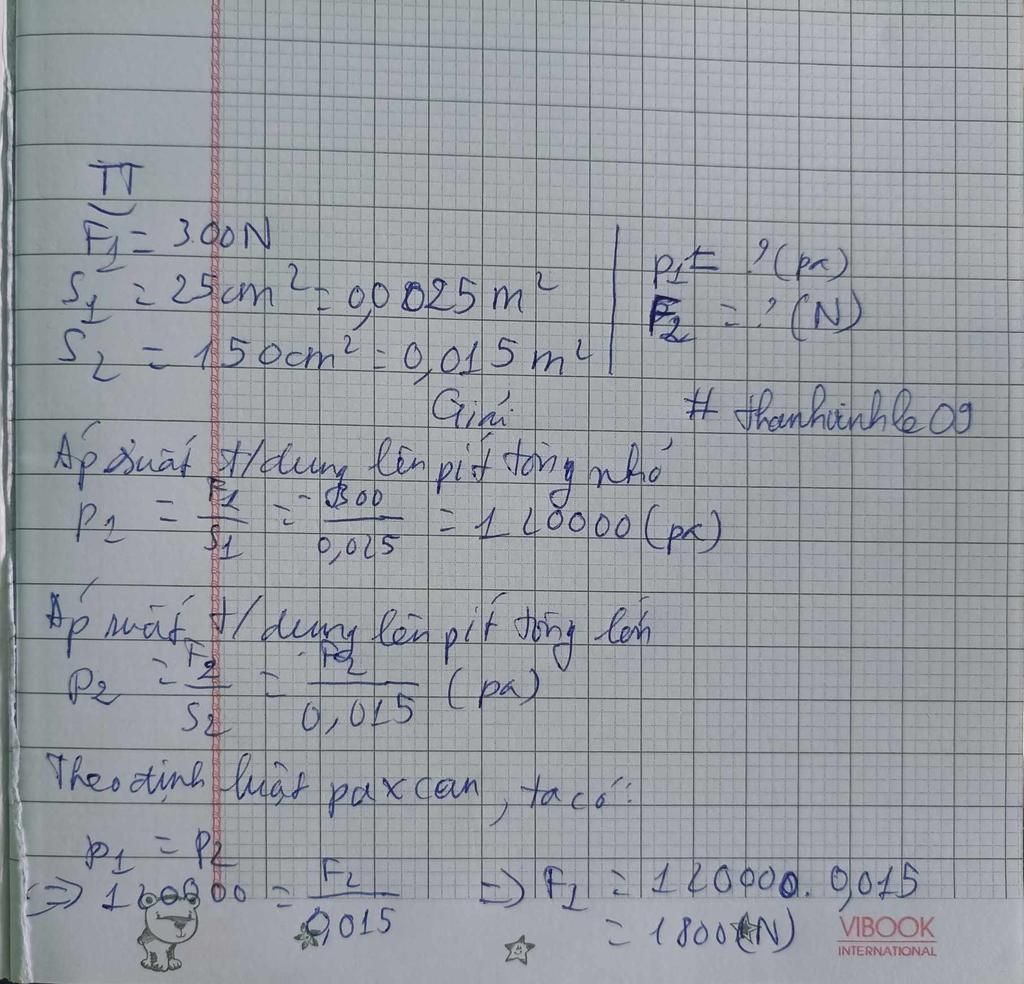 TT
F1 = 300N
S1 = 25cm² = 0,0025 m²
S2 = 150cm² = 0,015 m²
p1 = ? (pa)
F2 = ? (N)
Giải
# thanhvinhle09
Áp suất t/dụng lên pít tông nhỏ
P1 = F1/S1 = 300/0,025 = 120000 (pa)
Áp suất t/dụng lên pít tông lớn
P2 = F2/S2 = F2/0,015 (pa)
Theo định luật paxcan, ta có:
p1 = P2
=> 120000 = F2/0,015 => F2 = 120000. 0,015
= 1800 (N)
VIBOOK
INTERNATIONAL